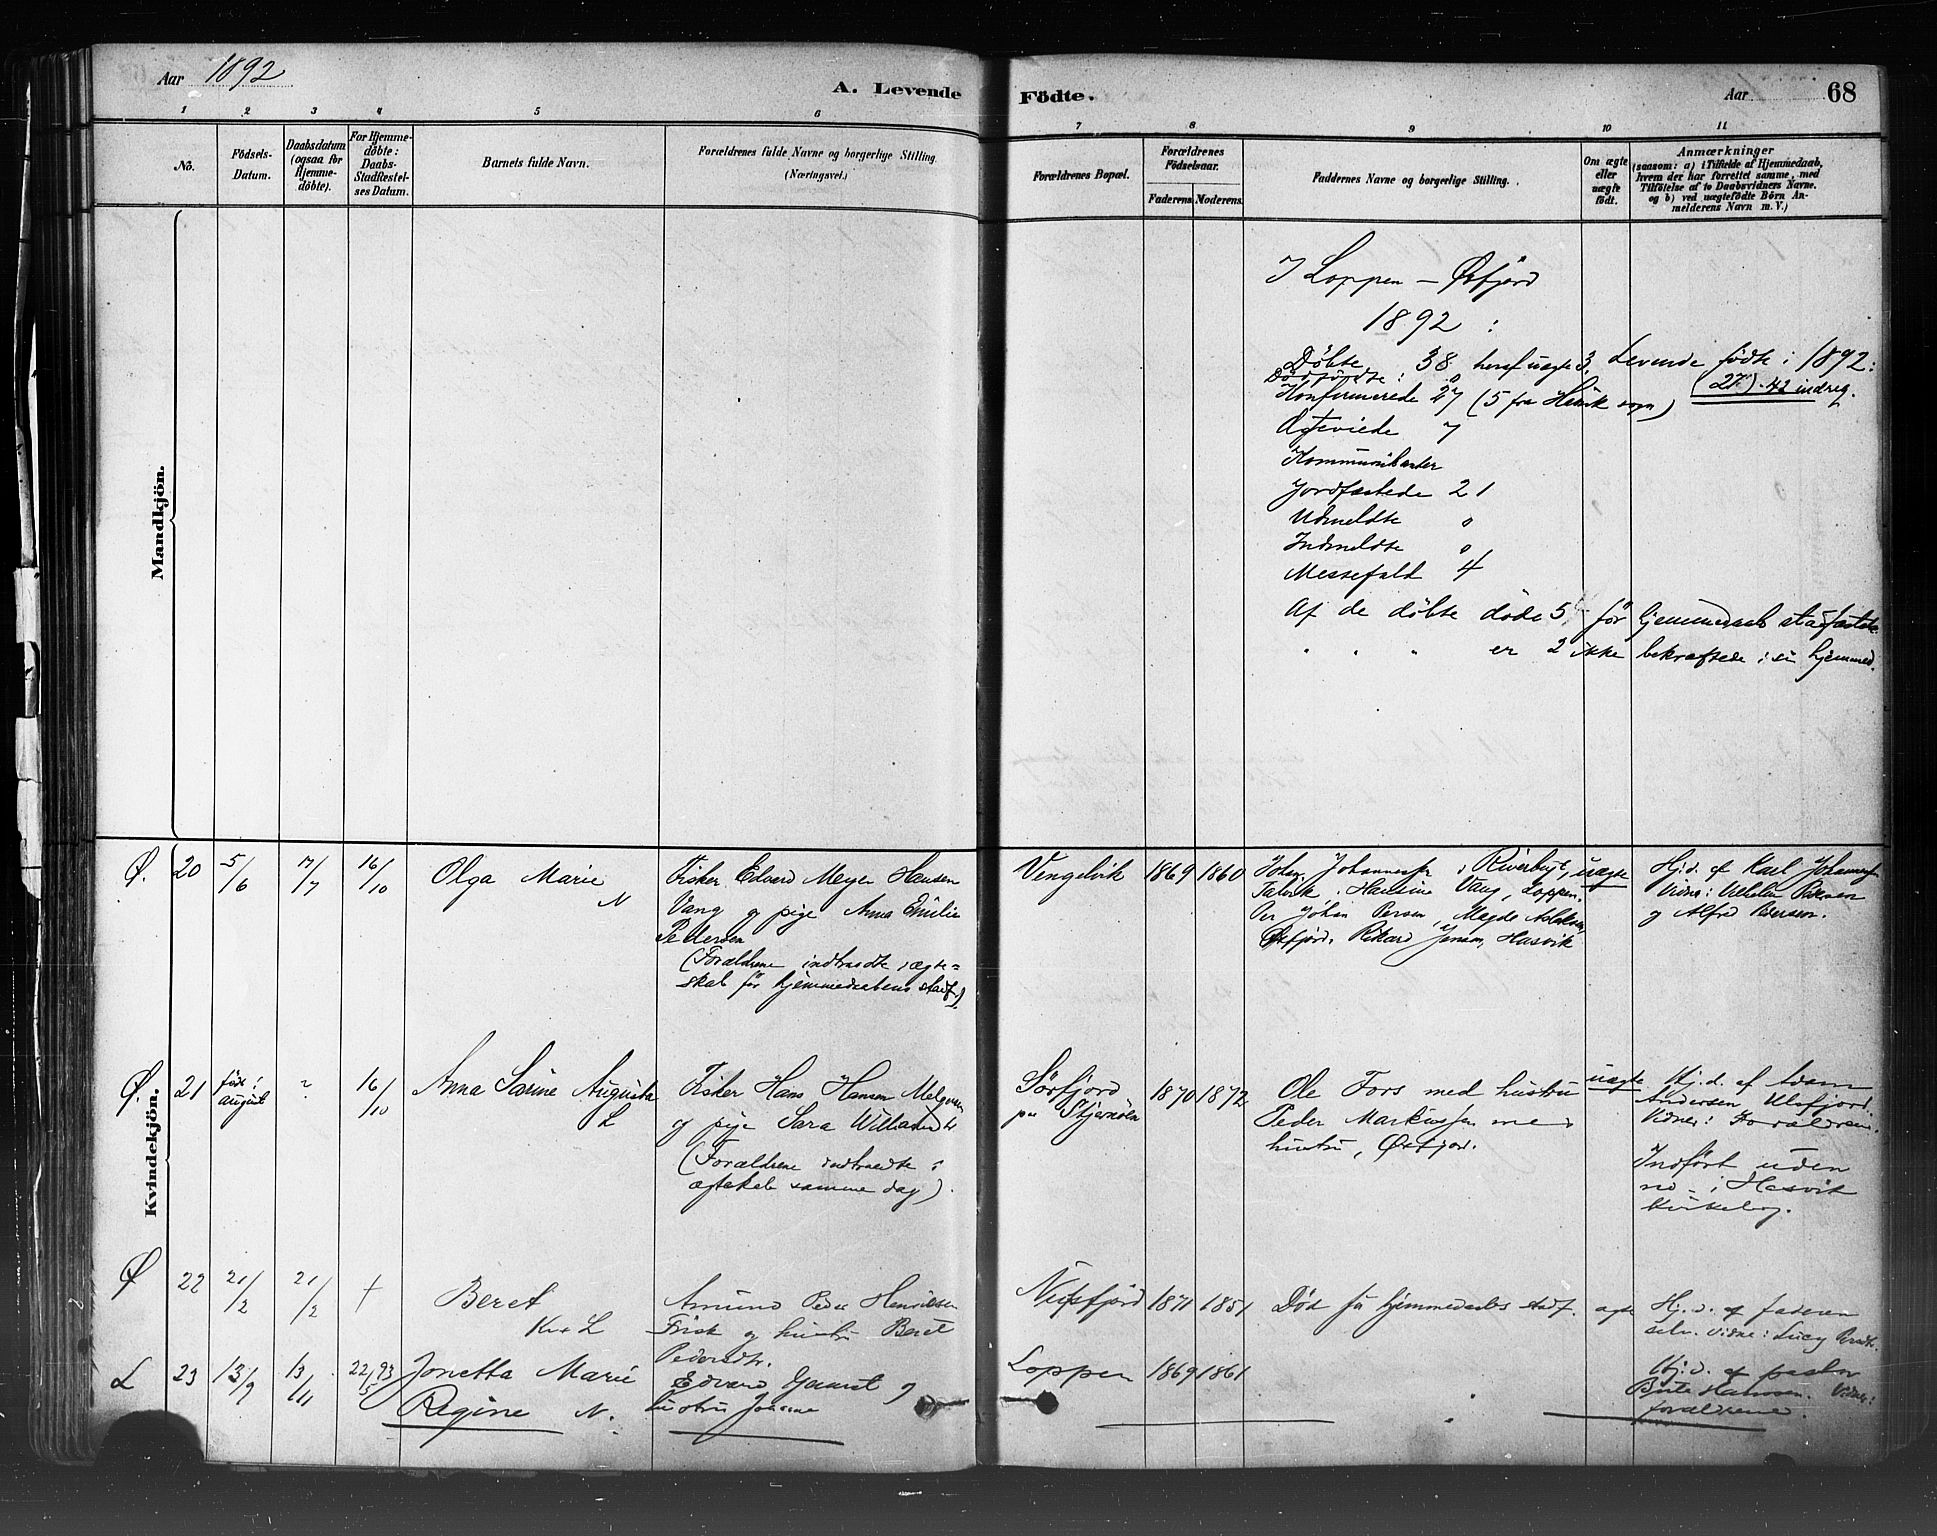 Aar 1892
A. Levende
Födte.
Aar
68
1 2 3 4 5 6 7 8 9 10 11
No.
Födsels-
Datum.
Daabsdatum
(ogsaa for
Hjemme-
döbte).
For Hjemme-
döbte:
Daabs-
Stadfæstel-
ses Datum.
Barnets fulde Navn.
Forældrenes fulde Navne og borgerlige Stilling.
(Næringsvei.)
Forældrenes Bopæl.
Forældrenes
Födselsaar.
Faderens. Moderens.
Faddernes Navne og borgerlige Stilling.
Om ægte
eller
uægte
födt.
Anmærkninger
(saasom: a) i Tilfælde af Hjemmedaab,
hvem der har forrettet samme, med
Tilföielse af to Daabsvidners Navne.
og b) ved uægtefödte Börn An-
melderens Navn m. V.)
Mandkjön.
I Loppen - Øxfjord
1892 :
Døbte : 38 heraf uægte 3.
Dødfødte : 0
Konfirmerede 27 (5 fra Hasvik sogn)
Ægteviede 7
Kommunikanter
Jordfæstede 21
Udmeldte 0
Indmeldte 0
Messefald 4
Af de døbte døde 5 før hjemmedaab stadfæstet.
" " " er 2 ikke bekræftede i sin hjemmed.
Levende fødte i 1892:
(27) - 42 indreg.
Kvindekjön.
Ø. 20 5/6 17/7 16/10 Olga Marie
N
Fisker Edvard Meyer Hansen
Vang og pige Anna Emilie
Pedersen
(Forældrene indtraadte i ægte=
skab før hjemmedaabens stadf.)
Vengelvik 1869 1860
Vang, Loppen.
Per Johan Persen, Magde Aslaksen,
Øxfjord. Rikard Jensen, Hasvik
uægte
Hj.d. af Karl Johannesen
Vidner: Vilhelm Pedersen
og Alfred Persen.
Ø. 21 født i
august
" 16/10 Anna Sarine Augusta
L
Fisker Hans Hansen
og pige Sara
(Forældrene indtraadte i
ægteskab samme dag).
Sørfjord
paa Stjernøen
1870 1872
Ole Fors med hustru
Peder Markussen med
hustru, Øxfjord.
uægte
Hj.d. af Adam
Andersen Ulsfjord.
Vidner: Forældrene.
Indført uden
no - i Hasvik
kirkebog.
Ø 22 21/2 21/2 † Beret
L
Amund Peder Henriksen
Frisk og hustru Beret
Pedersdtr.
1871 1851
Død før hjemmedaabs stadf.
ægte
Hj.d. af faderen
selv. Vidne: Lucy
L 23 13/9 13/11 22/5 93 Jonetta Marie
Regine N.
Edvard Gamst og
hustru Johanne
Loppen 1869 1861
"
Hj.d. af pastor
Hanssen. Vidner:
forældrene.